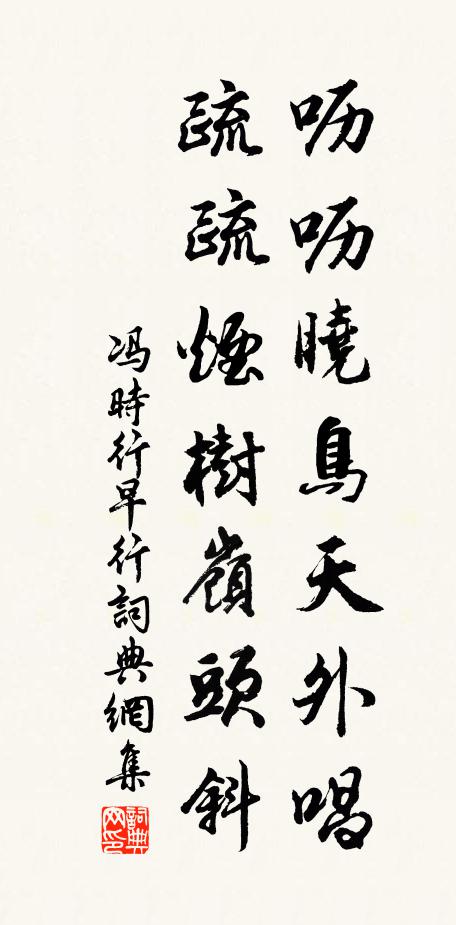 呖呖曉鳥天外唱
疏疏煙樹嶺頭斜
冯時行早行詞典網集
詞典网印